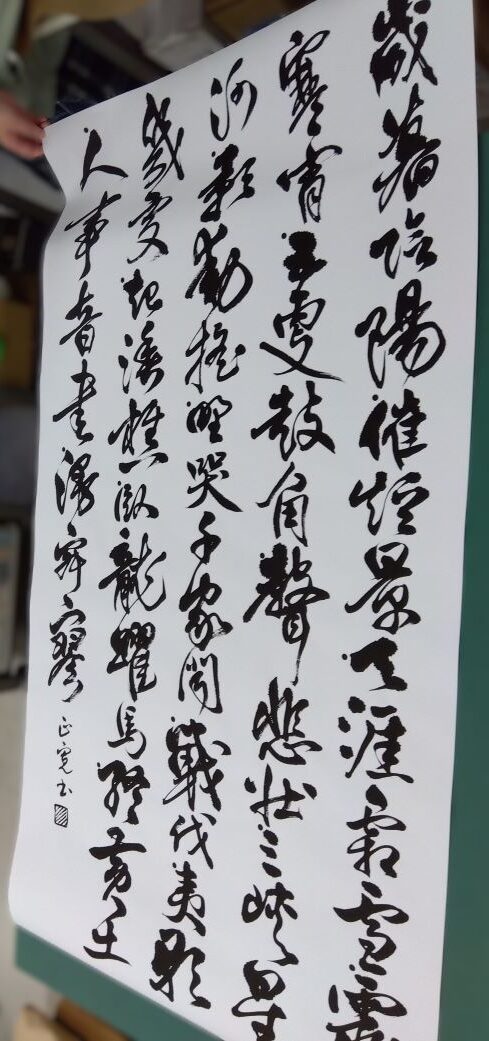 歲暮陰陽催短景天涯霜雪霽
寒宵五更鼓角聲悲壯三峽星
河影動搖野哭千家聞戰伐夷歌
幾處起漁樵臥龍躍馬終黃土
人事音書漫寂寥 正寬书